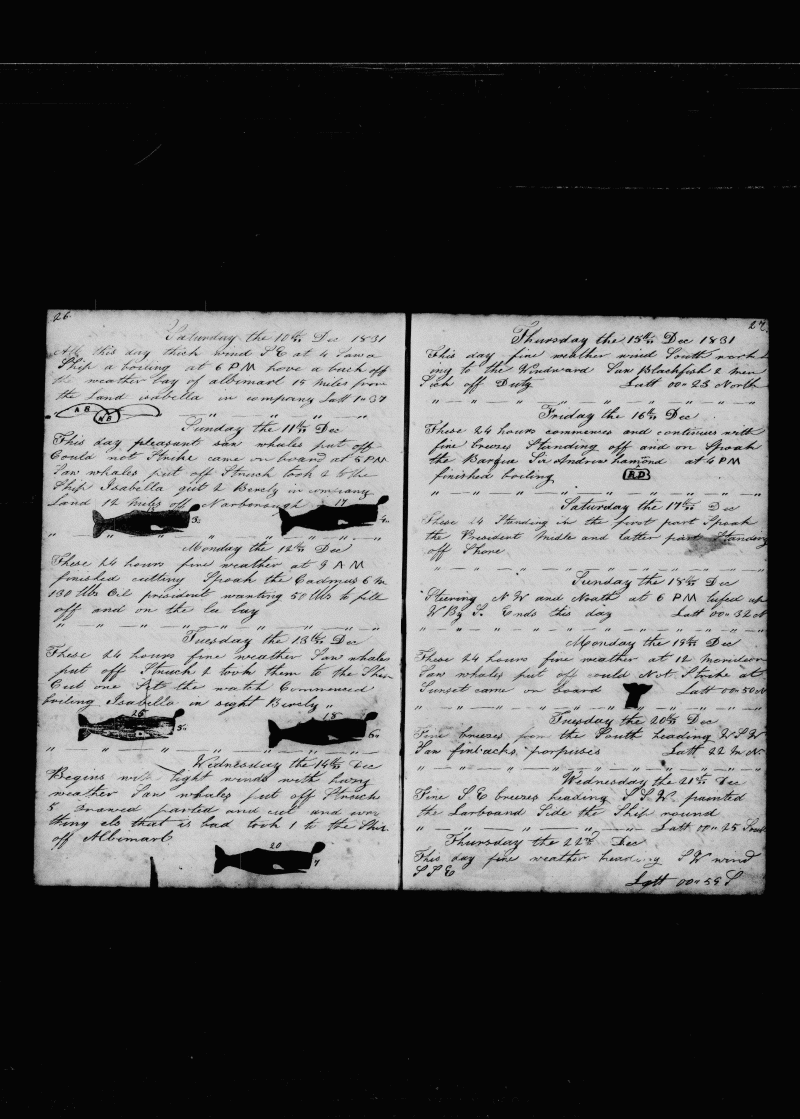 26
Saturday the 10th Dec 1831
All this day thick wind S E at 4 saw a
Ship a boiling at 6 PM hove a back off
the weather bay of albimarl 15 miles from
the Land isabella in company Latt 1=37
A B
N B
Sunday the 11th Dec
This day pleasant saw whales put off
Could not Strike came on board at 5 PM
Saw whales put off Struck took 2 to the
Ship Isabella got 2 Bersly in company
Land 12 miles off Narborough
17
Monday the 12th Dec
These 24 hours fine weather at 9 AM
finished cutting Spoak the Cadmus 6 m
130 bbs Oil president wanting 50 bbs to fill
off and on the la bay
Tuesday the 13th Dec
These 24 hours fine weather Saw whales
put off Struck 2 took them to the Ship
Cut one Sets the watch Commenced
boiling Isabella in sight Bersly
25
18
Wednesday the 14th Dec
Begins with light winds with hevy
weather Saw whales put off Struck
5 Drawed parted and cut and evry
thing els that is bad took 1 to the Ship
off Albimarl
20
7
27
Thursday the 15th Dec 1831
This day fine weather wind South
ing to the Windward Saw Blackfish 2 men
Sick off Duty Latt 00=23 North
Friday the 16th Dec
These 24 hours commences and continues with
fine brezes Standing off and on Spoak
the Barque Sir Andrew hamond at 4 PM
finished boiling R D
Saturday the 17th Dec
These 24 Standing in the first part Spoak
the President Midle and latter part Standing
off Shore
Sunday the 18th Dec
Steering N W and Noath at 6 PM lufed up
W By S. Ends this day Latt 00=32 N
Monday the 19th Dec
These 24 hours fine weather at 12 meridian
Saw whales put off could Not Strike at
Sunset came on board Latt 00=50 N
Tuesday the 20th Dec
Fine breezes from the South heading W S W
Saw finbacks, porpuses Latt 22 m N
Wednesday the 21st Dec
Fine S. E breezes heading S. S. W. painted
the Larboard Side the Ship round
Latt 00=25 South
Thursday the 22d Dec
This day fine weather heading S W wind
S S E Latt 00=59 S